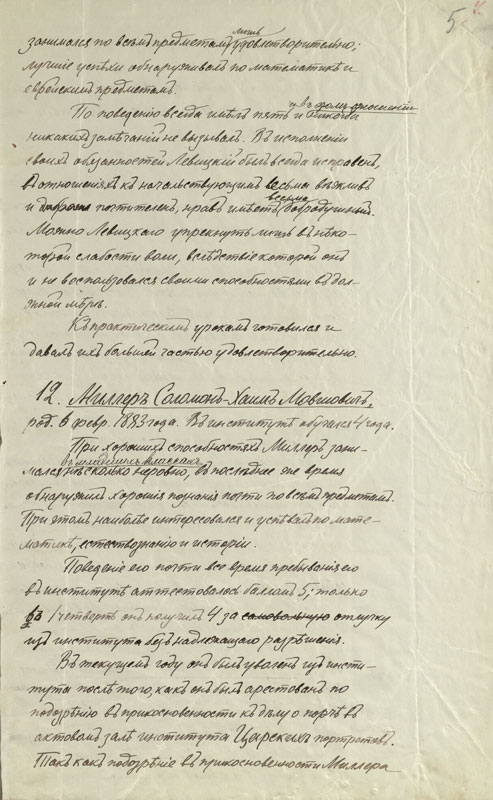 5
лишь
занимался по всѣмъ предметамъ удовлетворительно;
лучшіе успѣхи обнаруживалъ по математикѣ и
еврейскимъ предметамъ.
По поведенію всегда имѣлъ пять и въ этомъ отношеніи
никакихъ замѣчаній не вызывалъ. Въ исполненіи
своихъ обязанностей Левицкій былъ всегда исправенъ,
въ отношеніяхъ къ начальствующимъ весьма вѣжливъ
и почтителенъ, нравъ имѣетъ весьма добродушный.
Можно Левицкаго упрекнуть лишь въ нѣко-
торой слабости воли, вслѣдствіе которой онъ
и не воспользовался своими способностями въ дол-
жной мѣрѣ.
Къ практическимъ урокамъ готовился и
давалъ ихъ большей частью удовлетворительно.
12. Миллеръ Соломонъ-Хаимъ Мовшовичъ,
род. 6 февр. 1883 года. Въ институтѣ обучался 4 года.
При хорошихъ способностяхъ Миллеръ зани-
въ младшихъ классахъ
мался нѣсколько неровно, въ послѣднее же время
обнаружилъ хорошія познанія почти по всѣмъ предметамъ.
При этомъ наиболѣе интересовался и успѣвалъ по мате-
матикѣ, естествознанію и исторіи.
Поведеніе его почти все время пребыванія его
въ институтѣ аттестовалось балломъ 5; только
въ 1 четверть онъ получилъ 4 за самовольную отлучку
изъ института безъ надлежащаго разрѣшенія.
Въ текущемъ году онъ былъ уволенъ изъ инсти-
тута послѣ того, какъ онъ былъ арестованъ по
подозрѣнію въ прикосновенности къ дѣлу о порчѣ въ
актовомъ залѣ института Царскихъ портретовъ.
Такъ какъ подозрѣніе въ прикосновенности Миллера